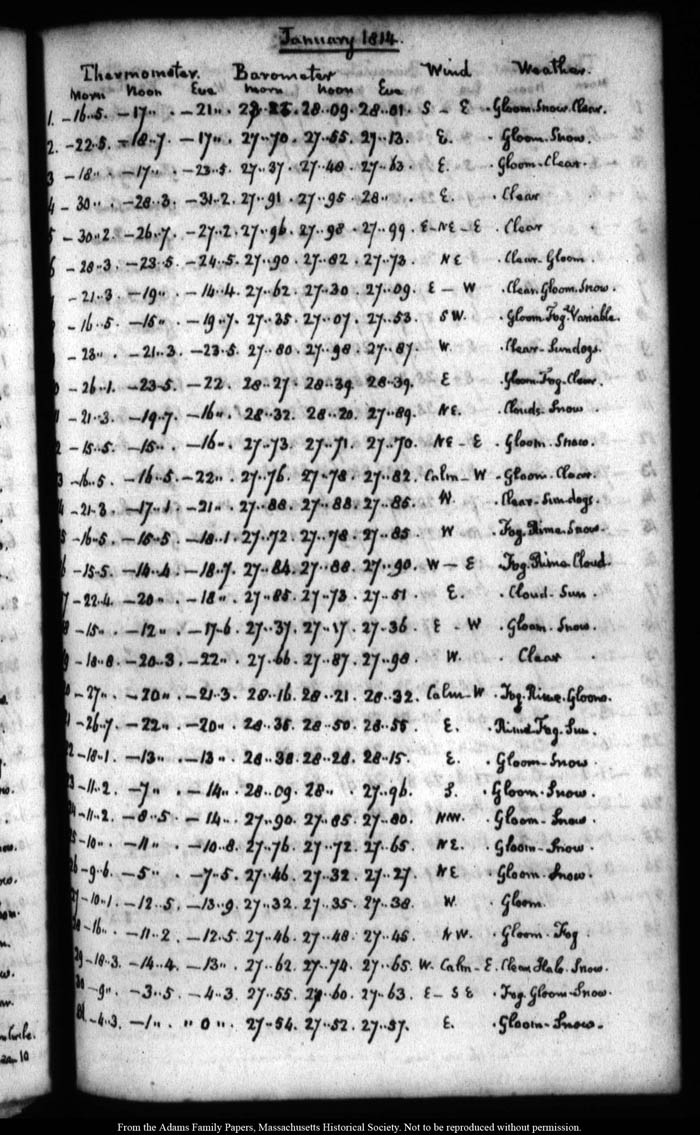 January 1814.
Thermometer. Barometer Wind Weather.
Morn Noon Eve Morn Noon Eve
1. -16..5. -17" . -21" . 28..09. 28..01. S - E . Gloom. Snow. Clear.
2. -22..5. -18..7. -17" . 27..70. 27..55. 27..13. E. . Gloom. Snow.
3 -18" . -17" . -23..5. 27..37. 27..48. 27..63. E. . Gloom. Clear.
4 -30" . -28..3. -31..2. 27..91. 27..95. 28" . E. . Clear
5 -30..2. -26..7. -27..2. 27..96. 27..98. 27..99. E-NE-E . Clear
6 -28..3. -23..5. -24..5. 27..90. 27..82. 27..73. NE . Clear. Gloom.
-21..3. -19" . -14..4. 27..62. 27..30. 27..09. E - W . Clear. Gloom. Snow.
-16..5. -15" . -19..7. 27..35. 27..07. 27..53. SW. . Gloom. Fog. Variable.
-23" . -21..3. -23..5. 27..80. 27..98. 27..87. W. . Clear. Sundogs.
0 -26..1. -23..5. -22. 28..27. 28..39. 28..39. E . Gloom. Fog. Clear.
1 -21..3. -19..7. -16" . 28..32. 28..20. 27..89. NE. . Clouds. Snow .
2 -15..5. -15" . -16" . 27..73. 27..71. 27..70. NE - E . Gloom. Snow.
3 -16..5. -16..5. -22" . 27..76. 27..78. 27..82. Calm - W . Gloom. Clear.
4 -21..3. -17..1. -21" . 27..88. 27..88. 27..86. W. . Clear. Sundogs.
5 -16..5. -15..5. -18..1. 27..72. 27..78. 27..85 W . Fog. Rime. Snow.
6 -15..5. -14..4. -18..7. 27..84. 27..88. 27..90. W - E . Fog. Rime. Cloud.
7 -22..4. -20" . -18" . 27..85. 27..73. 27..51 E. . Cloud. Sun .
8 -15" . -12" . -17..6. 27..37. 27..17. 27..36. E - W . Gloom. Snow.
9 -18..8. -20..3. -22" . 27..66. 27..87. 27..98. W. . Clear
0 -27" . -20" . -21..3. 28..16. 28..21. 28..32. Calm - W . Fog. Rime. Gloom.
1 -26..7. -22" . -20" . 28..35. 28..50. 28..55 E. . Rime. Fog. Sun.
22 -18..1. -13" . -13" . 28..38. 28..28. 28..15. E. . Gloom. Snow.
23 -11..2. -7" . -14" . 28..09. 28" . 27..96. S. . Gloom. Snow.
24 -11..2. -8..5. -14" . 27..90. 27..85. 27..80. NW. . Gloom. Snow.
25 -10" . -11" . -10..8. 27..76. 27..72. 27..65. NE. . Gloom. Snow.
26 -9..6. -5" . -7..5. 27..46. 27..32. 27..27. NE . Gloom. Snow.
27 -10..1. -12..5. -13..9. 27..32. 27..35. 27..38. W. . Gloom.
28 -16" . -11..2. -12..5. 27..46. 27..48. 27..45. NW. . Gloom. Fog
29 -18..3. -14..4. -13" . 27..62. 27..74. 27..65. W. Calm - E. Clear. Halo. Snow.
30 -9" . -3..5. -4..3. 27..55. 27..60. 27..63. E - SE . Fog. Gloom. Snow.
31. -4..3. -1" . " 0 " . 27..54. 27..52. 27..37. E. . Gloom. Snow.
From the Adams Family Papers, Massachusetts Historical Society. Not to be reproduced without permission.